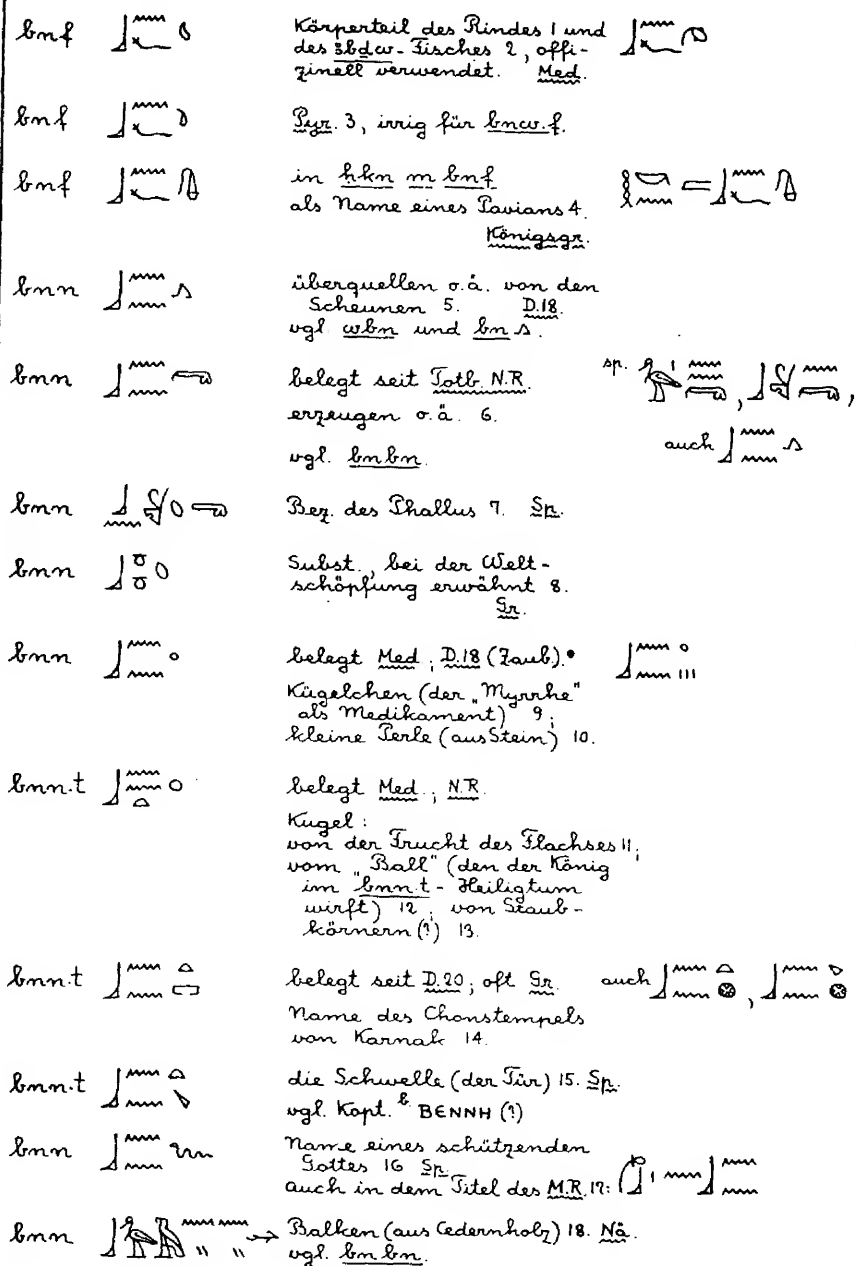 bnf Körperteil des Rindes 1 und
des ꜣbḏw-Fisches 2, offi-
zinell verwendet. Med.
bnf Pyr. 3, irrig für bnw.f.
bnf in ḥkn m bnf
als Name eines Pavians 4.
Königsgr.
bnn überquellen o.ä. von den
Scheunen 5. D.18.
vgl. wbn und bn
bnn belegt seit Totb. N.R. sp.
erzeugen o.ä. 6.
auch
vgl. bnbn.
bnn Bez. des Phallus 7. Sp.
bnn Subst., bei der Welt-
schöpfung erwähnt 8.
Gr.
bnn belegt Med.; D.18 (Zaub).
Kügelchen (der „Myrrhe"
als Medikament) 9;
kleine Perle (aus Stein) 10.
bnn.t belegt Med.; N.R.
Kugel:
von der Frucht des Flachses 11;
vom „Ball" (den der König
im bnn.t-Heiligtum
wirft) 12; von Staub-
körnern (?) 13.
bnn.t belegt seit D.20; oft Gr. auch
Name des Chonstempels
von Karnak 14.
bnn.t die Schwelle (der Tür) 15. Sp.
vgl. Kopt. b BENNH (?)
bnn Name eines schützenden
Gottes 16 Sp.
auch in dem Titel des M.R. 17:
bnn Balken (aus Cedernholz) 18. Nä.
vgl. bnbn.